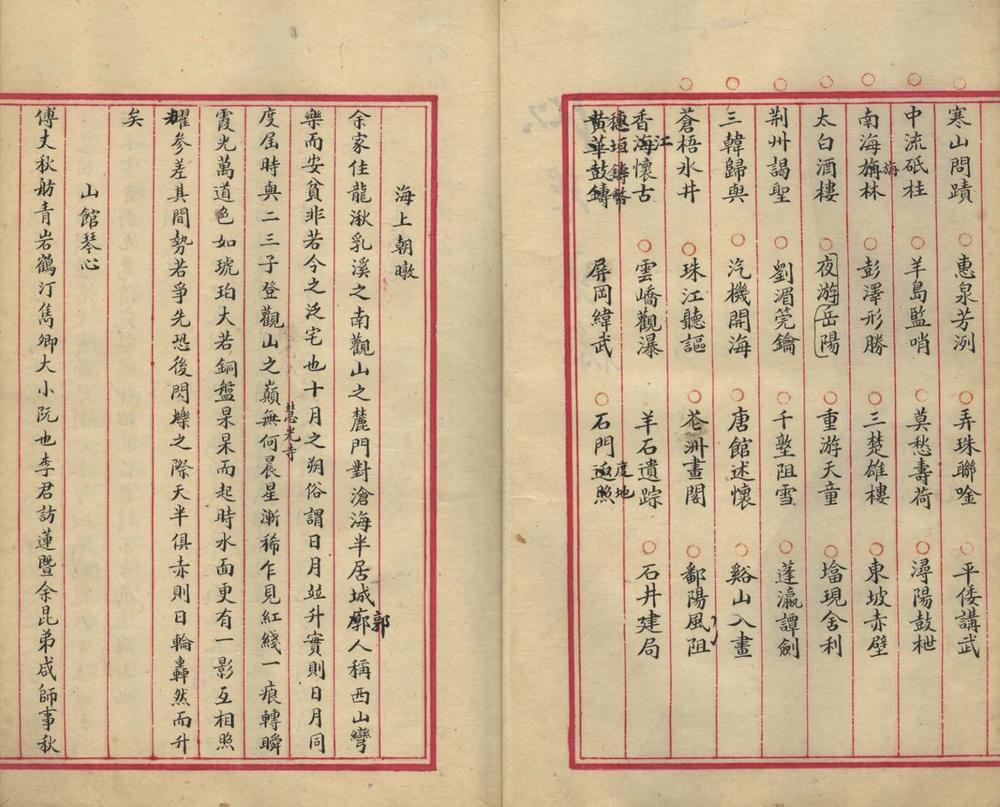 寒山問蹟 ○惠泉芳洌 ○弄珠聯唫 ○平倭講武
中流砥柱 ○羊島監哨 ○莫愁壽荷 ○潯陽鼓枻
南海旃林 ○彭澤形勝 ○三楚雄樓 ○東坡赤壁
太白酒樓 ○夜游岳陽 ○重游天童 ○墖現舍利
荆州謁聖 ○劉湄筦鑰 ○千壑阻雪 ○蓬瀛譚劍
三韓歸輿 ○汽機開海 ○唐館述懷 ○谿山入畫
蒼梧氷井 ○珠江聽謳 ○苍洲畫閣 ○鄱陽風阻
香海懷古 ○雲嶠觀瀑 羊石遺踪 ○石井建局
江
穗垣鑄幣
黃華鼓鑄 屏岡緯武 ○石門返照
度地
海上朝暾
余家住龍湫乳溪之南觀山之麓門對滄海半居城廓人稱西山彎
郭
樂而安貧非若今之泛宅也十月之朔俗謂日月並升實則日月同
度屆時與二三子登觀山之巔無何晨星漸稀乍見紅綫一痕轉瞬
慧光寺
霞光萬道色如琥珀大若銅盤杲杲而起時水面更有一影互相照
耀參差其間勢若爭先恐後閃爍之際天半俱赤則日輪轟然而升
矣
山館琴心
傅丈秋舫青岩鶴汀雋卿大小阮也李君訪蓮暨余昆弟咸師事秋